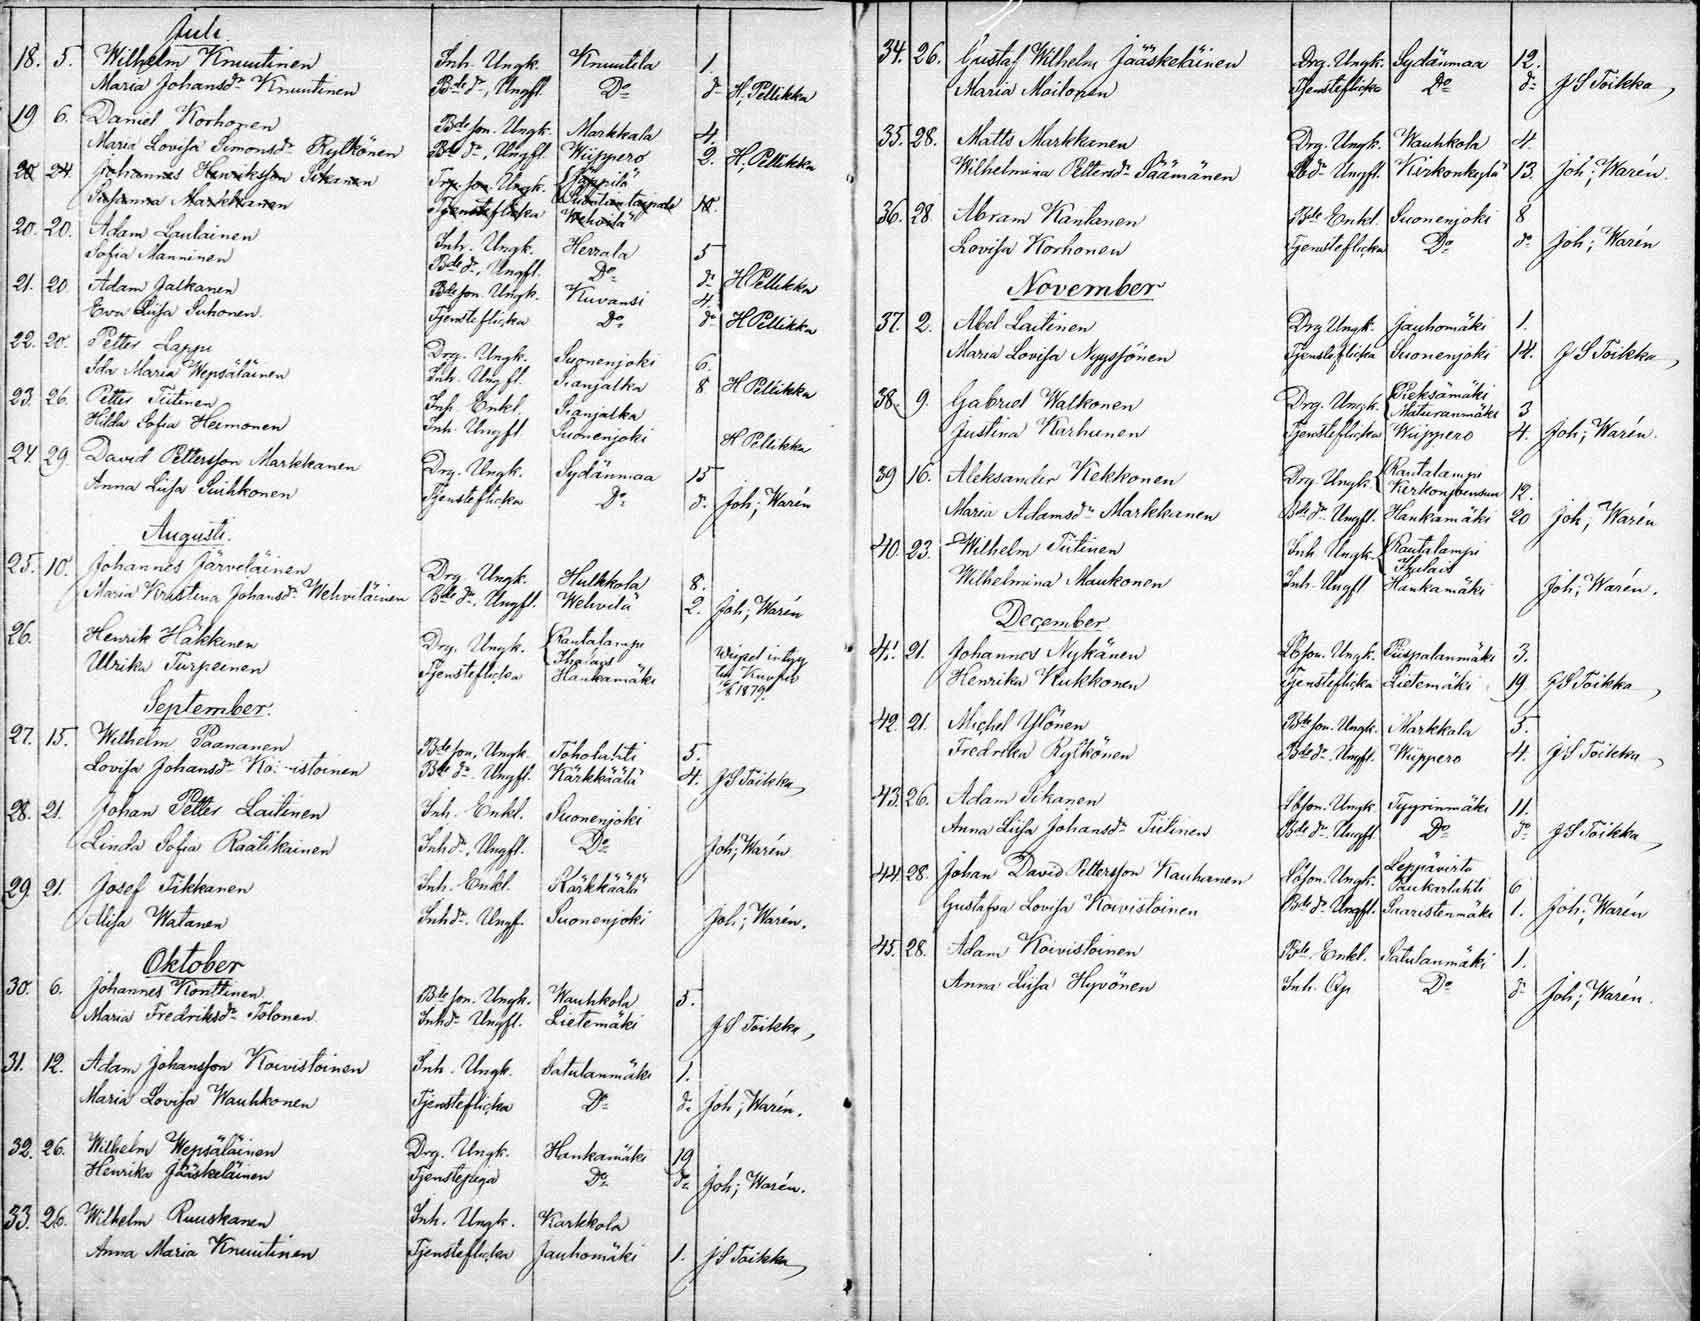 Juli
18. 5. Wilhelm Knuutinen Inh. Ungk. Knuutila 1.
Maria Johansdr Knuutinen Bde dr, Ungfl. Do d. H. Pellikka
19 6. Daniel Korhonen Bde son. Ungk. Markkala 4.
Maria Lovisa Simonsdr Rytkönen Bde dr, Ungfl. Wiippero 2. H. Pellikka
20 24. Johannes Henriksson Sikanen Trp. son. Ungk. Jäppilä
Susanna Markkanen Tjensteflicka Wehvilä 18.
20. 20. Adam Laulainen Inh. Ungk. Herrala 5
Sofia Manninen Bde dr, Ungfl. Do d:
21. 20. Adam Jalkanen Bde son. Ungk. Kuvansi 4. H Pellikka
Eva Liisa Suhonen. Tjensteflicka Do d: H Pellikka
22. 20. Petter Lappi Drg. Ungk. Suonenjoki 6.
Ida Maria Wepsäläinen Inh. Ungfl. Sianjalka 8 H Pellikka
23. 26. Petter Tiitinen Inh. Enkl. Sianjalka
Hilda Sofia Heimonen Inh. Ungfl Suonenjoki H Pellikka
24. 29. David Pettersson Markkanen Drg. Ungk. Sydänmaa 15
Anna Liisa Suihkonen Tjensteflicka Do d. Joh; Warén
Augusti.
25. 10. Johannes Järveläinen Drg. Ungk. Hulkkola 8.
Maria Kristina Johansdr Wehviläinen Bde dr, Ungfl. Wehvilä 2. Joh; Warén
26. Henrik Häkkinen Drg. Ungk. Rautalampi
Ulrika Turpeinen Tjensteflicka Hankamäki 1879.
September.
27. 15. Wilhelm Paananen Bde son, Ungk. Toholahti 5.
Lovisa Johansdr Koivistoinen Bde dr. Ungfl. Kärkkäälä 4. J S Toikka
28. 21. Johan Petter Laitinen Inh. Enkl. Suonenjoki
Linda Sofia Räätikainen Inhdr, Ungfl. Do Joh; Warén
29. 21. Josef Tikkanen Inh. Enkl. Kärkkäälä
Miisa Watanen Inhdr. Ungf. Suonenjoki Joh; Warén.
Oktober
30. 6. Johannes Konttinen Bde son. Ungk. Wauhkola 5.
Maria Fredriksdr Tolonen Inhdr. Ungfl. Lietemäki J S Toikka
31. 12. Adam Johansson Koivistoinen Inh. Ungk. Satulanmäki 1.
Maria Lovisa Wauhkonen Tjensteflicka Do d: Joh; Warén.
32. 26. Wilhelm Wepsäläinen Drg. Ungk. Hankamäki 19
Henrika Jääskeläinen Tjenstepiga Do d: Joh; Warén.
33. 26. Wilhelm Ruuskanen Inh. Ungk. Karkkola
Anna Maria Knuutinen Tjensteflicka Jauhomäki 1. J S Toikka
34. 26. Gustaf Wilhelm Jääskeläinen Drg. Ungk. Sydänmaa 12.
Maria Moilanen Tjensteflicka Do d: J S Toikka
35. 28. Matts Markkanen Drg. Ungk. Wauhkola 4.
Wilhelmina Pettersdr Säämänen Bdr Ungfl. Kirkonkylä 13. Joh; Warén.
36. 28. Abram Kantanen Bde Enkl. Suonenjoki 8
Lovisa Korhonen Tjensteflicka Do d: Joh; Warén
November
37. 2. Abel Laitinen Drg Ungk. Jauhomäki 1.
Maria Lovisa Nyyssönen Tjensteflicka Suonenjoki 14. J S Toikka
38. 9. Gabriel Walkonen Drg. Ungk. Pieksämäki Naturanmäki 3
Justina Karhunen Tjensteflicka Wiippero 4. Joh; Warén.
39 16. Aleksander Kekkonen Drg. Ungk. Rautalampi 12.
Maria Adamsdr Markkanen Bde dr. Ungfl. Hankamäki 20 Joh; Warén
40. 23. Wilhelm Tiitinen Inh Ungk. Rautalampi
Wilhelmina Maukonen Inh. Ungfl Hankamäki Joh; Warén.
December
41. 21. Johannes Nykänen Lbson. Ungk. Piispalanmäki 3.
Henrika Kukkonen Tjensteflicka Lietemäki 19. J S Toikka
42. 21. Michel Ylönen Bde son. Ungk. Markkala 5.
Fredrika Rytkönen Bde dr. Ungfl. Wiippero 4. J S Toikka
43. 26. Adam Sikanen Lbson. Ungk. Tyyrinmäki 11.
Anna Liisa Johansdr Tiitinen Bde dr. Ungfl. Do do J S Toikka
44. 28. Johan David Pettersson Kauhanen Lbson. Ungk. Leppävirta Paukarlahti 6
Gustafva Lovisa Koivistoinen Bde dr Ungfl. Saaristenmäki 1. Joh; Warén
45. 28. Adam Koivistoinen Bde. Enkl. Satulanmäki 1.
Anna Liisa Hyvönen Inh. Do d: Joh; Warén.